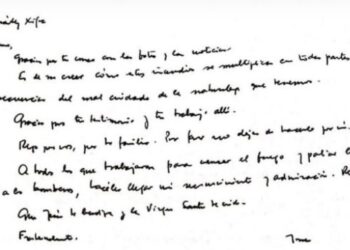 Gracias por tu correo con las fotos y las noticias.
Es de no creer cómo estos incendios se multiplican en todas partes
del mal cuidado de la naturaleza que tenemos.
Gracias por tu testimonio y tu trabajo allí.
Rezo por vos, por tu familia. Por favor no dejes de hacerlo por mí.
A todos los que trabajaron para vencer el fuego y
a los bomberos, haceles llegar mi reconocimiento y admiración.
Que Jesús te bendiga y la Virgen Santa te cuide.
Fraternalmente,